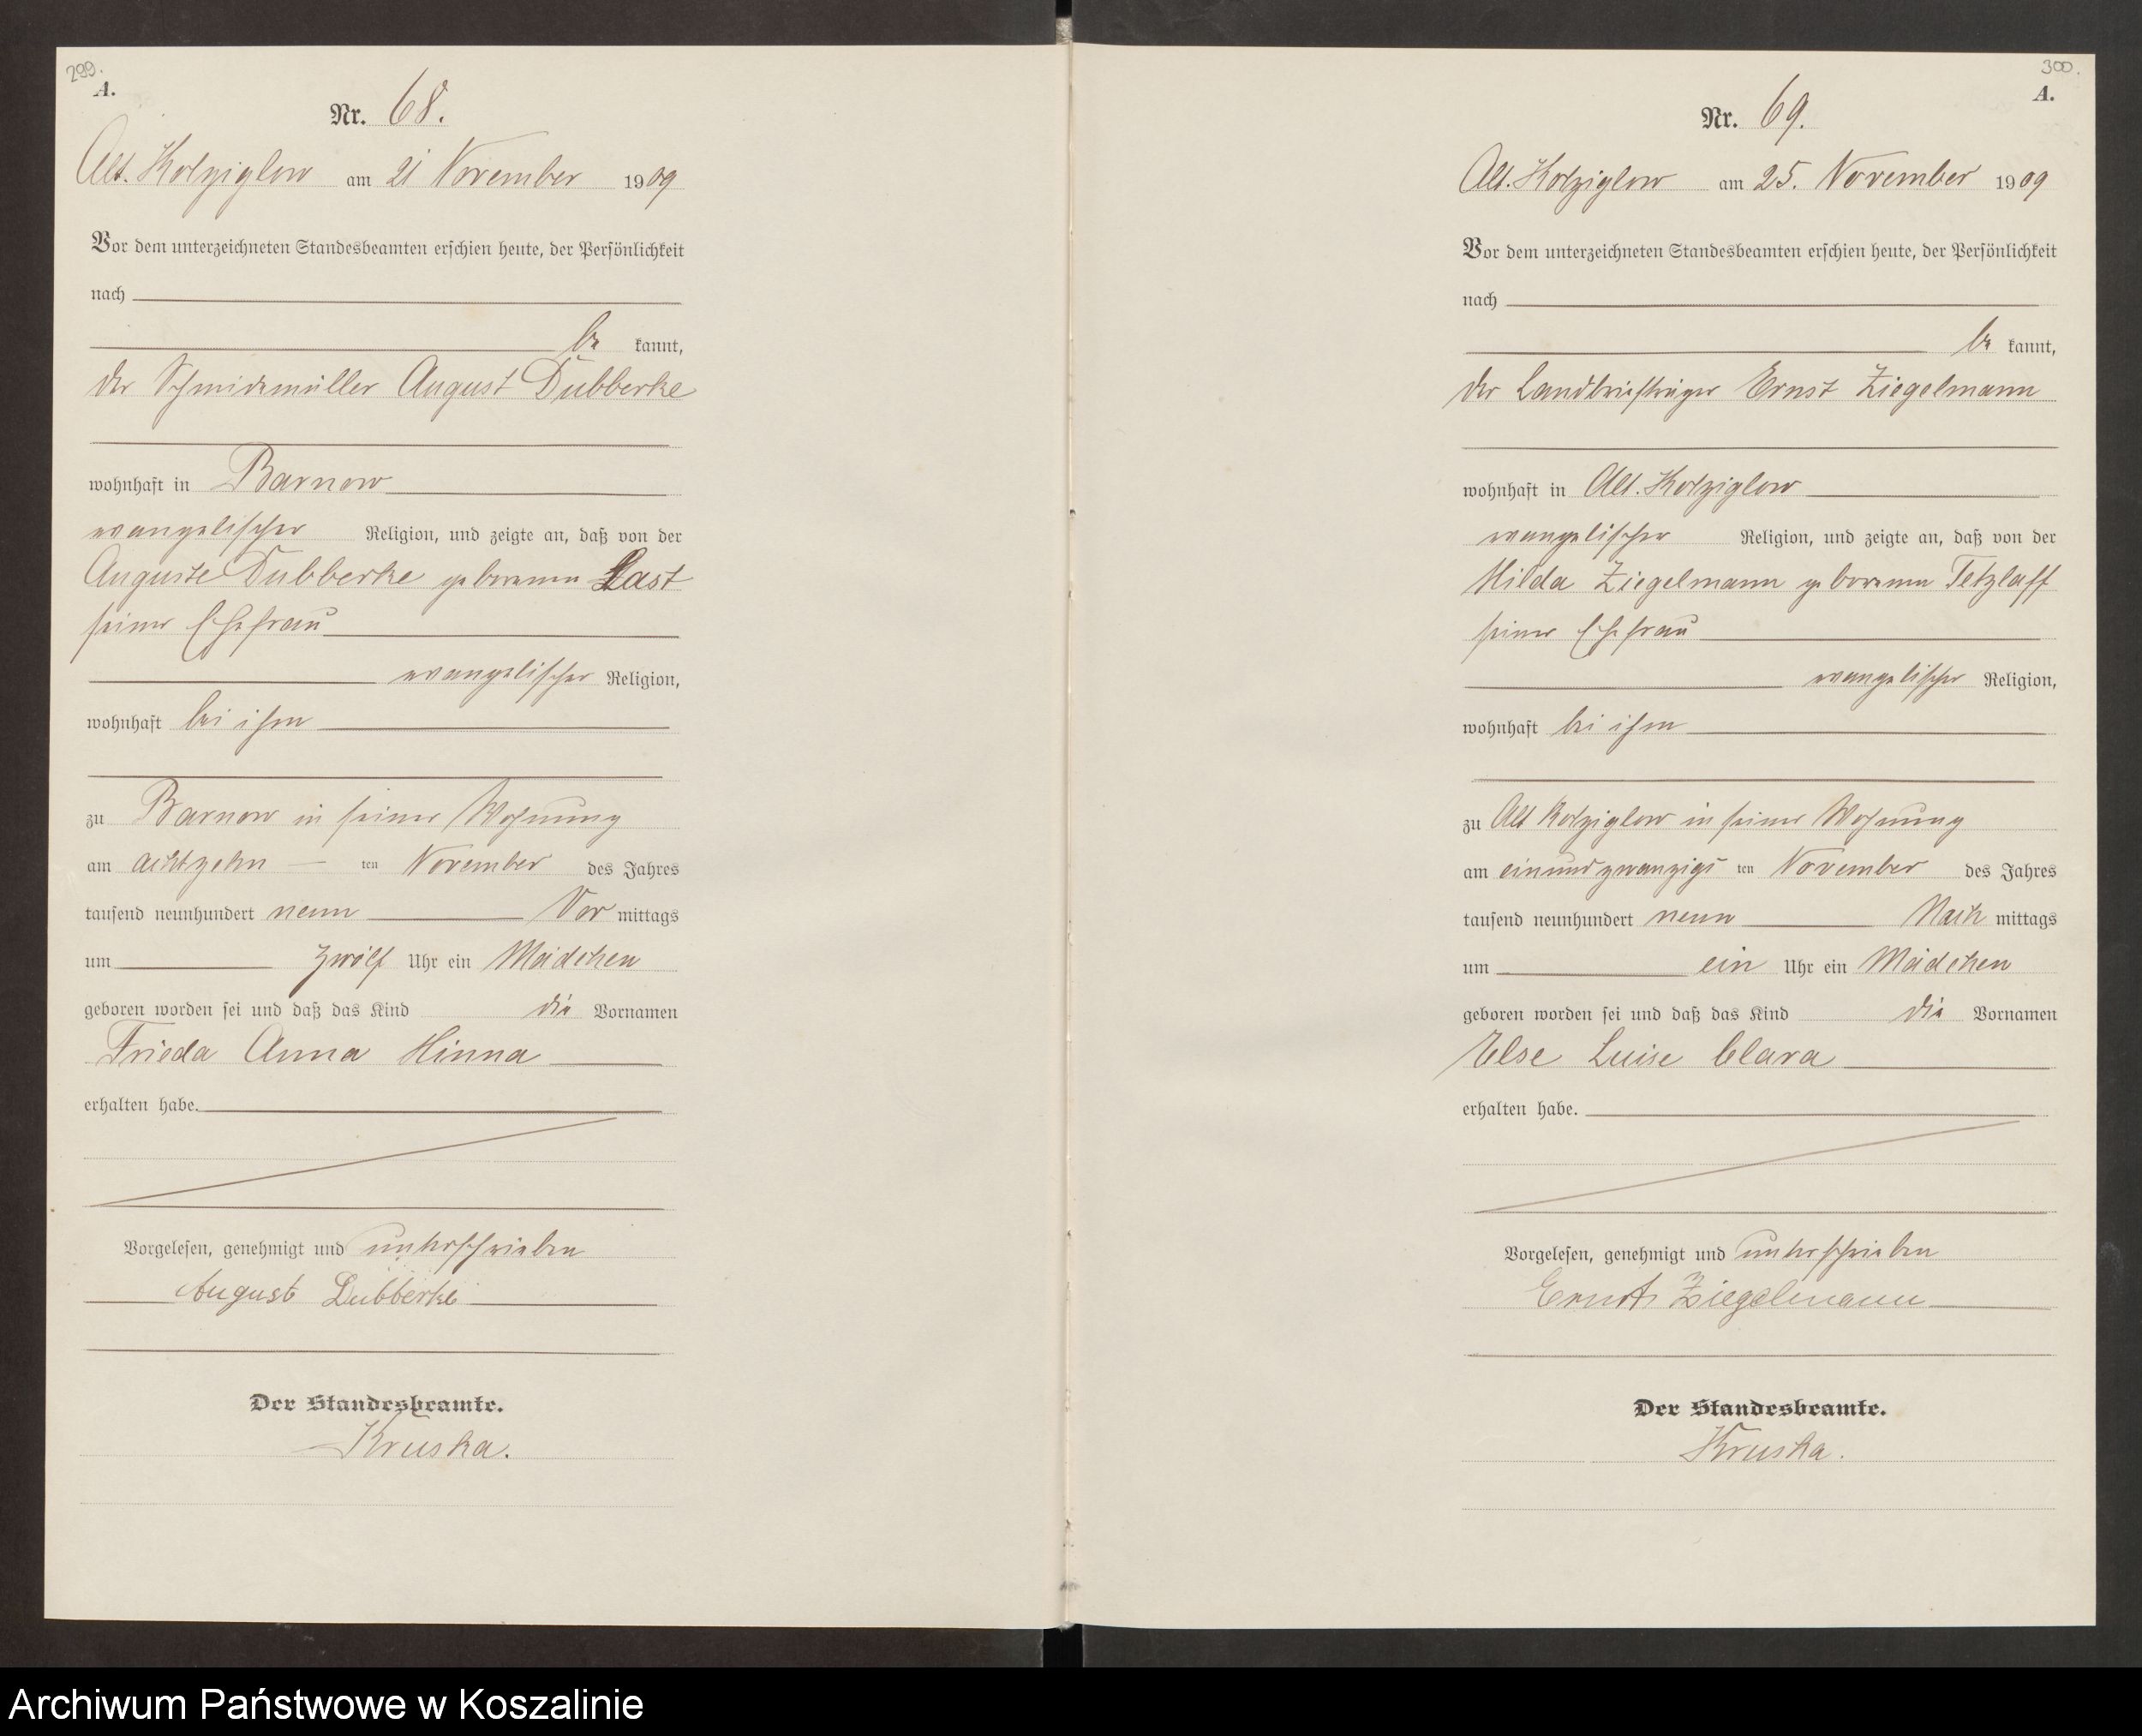 299.
A.
Nr. 68.
Alt. Kolziglow am 21 November 1909
Vor dem unterzeichneten Standesbeamten erschien heute, der Persönlichkeit
nach
be kannt,
der Schneidemüller August Dubberke
wohnhaft in Barnow
evangelischer Religion, und zeigte an, daß von der
Auguste Dubberke geborenen Last
seiner Ehefrau
evangelischer Religion,
wohnhaft bei ihm
zu Barnow in seiner Wohnung
am achtzehn ten November des Jahres
tausend neunhundert neun Vor mittags
um zwölf Uhr ein Mädchen
geboren worden sei und daß das Kind die Vornamen
Frieda Anna Minna
erhalten habe.
Vorgelesen, genehmigt und unterschrieben
August Dubberke
Der Standesbeamte.
Kruska.
300.
A.
Nr. 69.
Alt. Kolziglow am 25. November 1909
Vor dem unterzeichneten Standesbeamten erschien heute, der Persönlichkeit
nach
be kannt,
der Landbriefträger Ernst Ziegelmann
wohnhaft in Alt. Kolziglow
evangelischer Religion, und zeigte an, daß von der
Hilda Ziegelmann geborenen Tetzlaff
seiner Ehefrau
evangelischer Religion,
wohnhaft bei ihm
zu Alt Kolziglow in seiner Wohnung
am einundzwanzigs ten November des Jahres
tausend neunhundert neun Nach mittags
um ein Uhr ein Mädchen
geboren worden sei und daß das Kind die Vornamen
Else Luise Clara
erhalten habe.
Vorgelesen, genehmigt und unterschrieben
Ernst Ziegelmann
Der Standesbeamte.
Kruska.
Archiwum Państwowe w Koszalinie